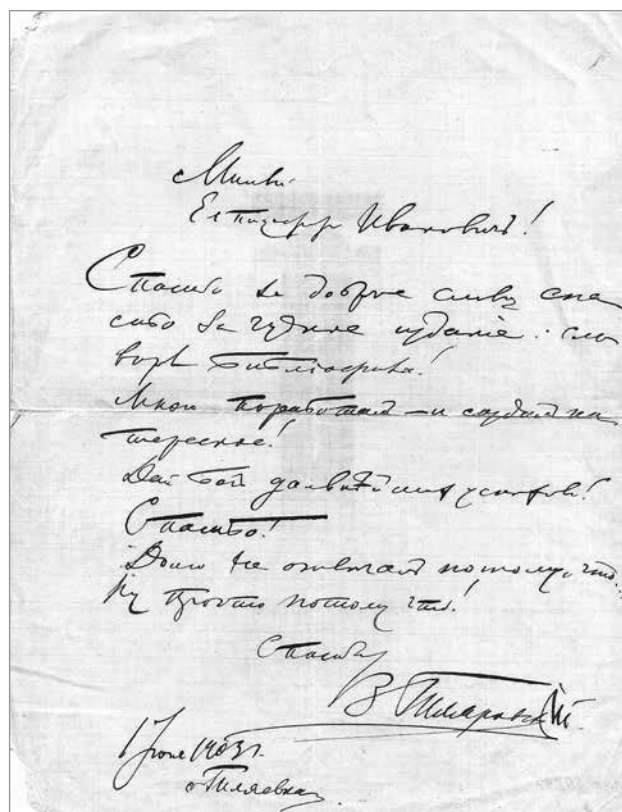 Милый
Елпидифор Ивановичъ!
Спасибо за доброе слово, спа
сибо за чудное изданіе: сло
варь библіографа!
Много поработали – и сердцу
Дай Богъ дальнѣйшихъ успѣховъ!
Спасибо!
Долго не отвѣчалъ потому, что...
Ну просто потому что!
Спасибо
В Гиляровскій
1 1903 г.
Гиляевка